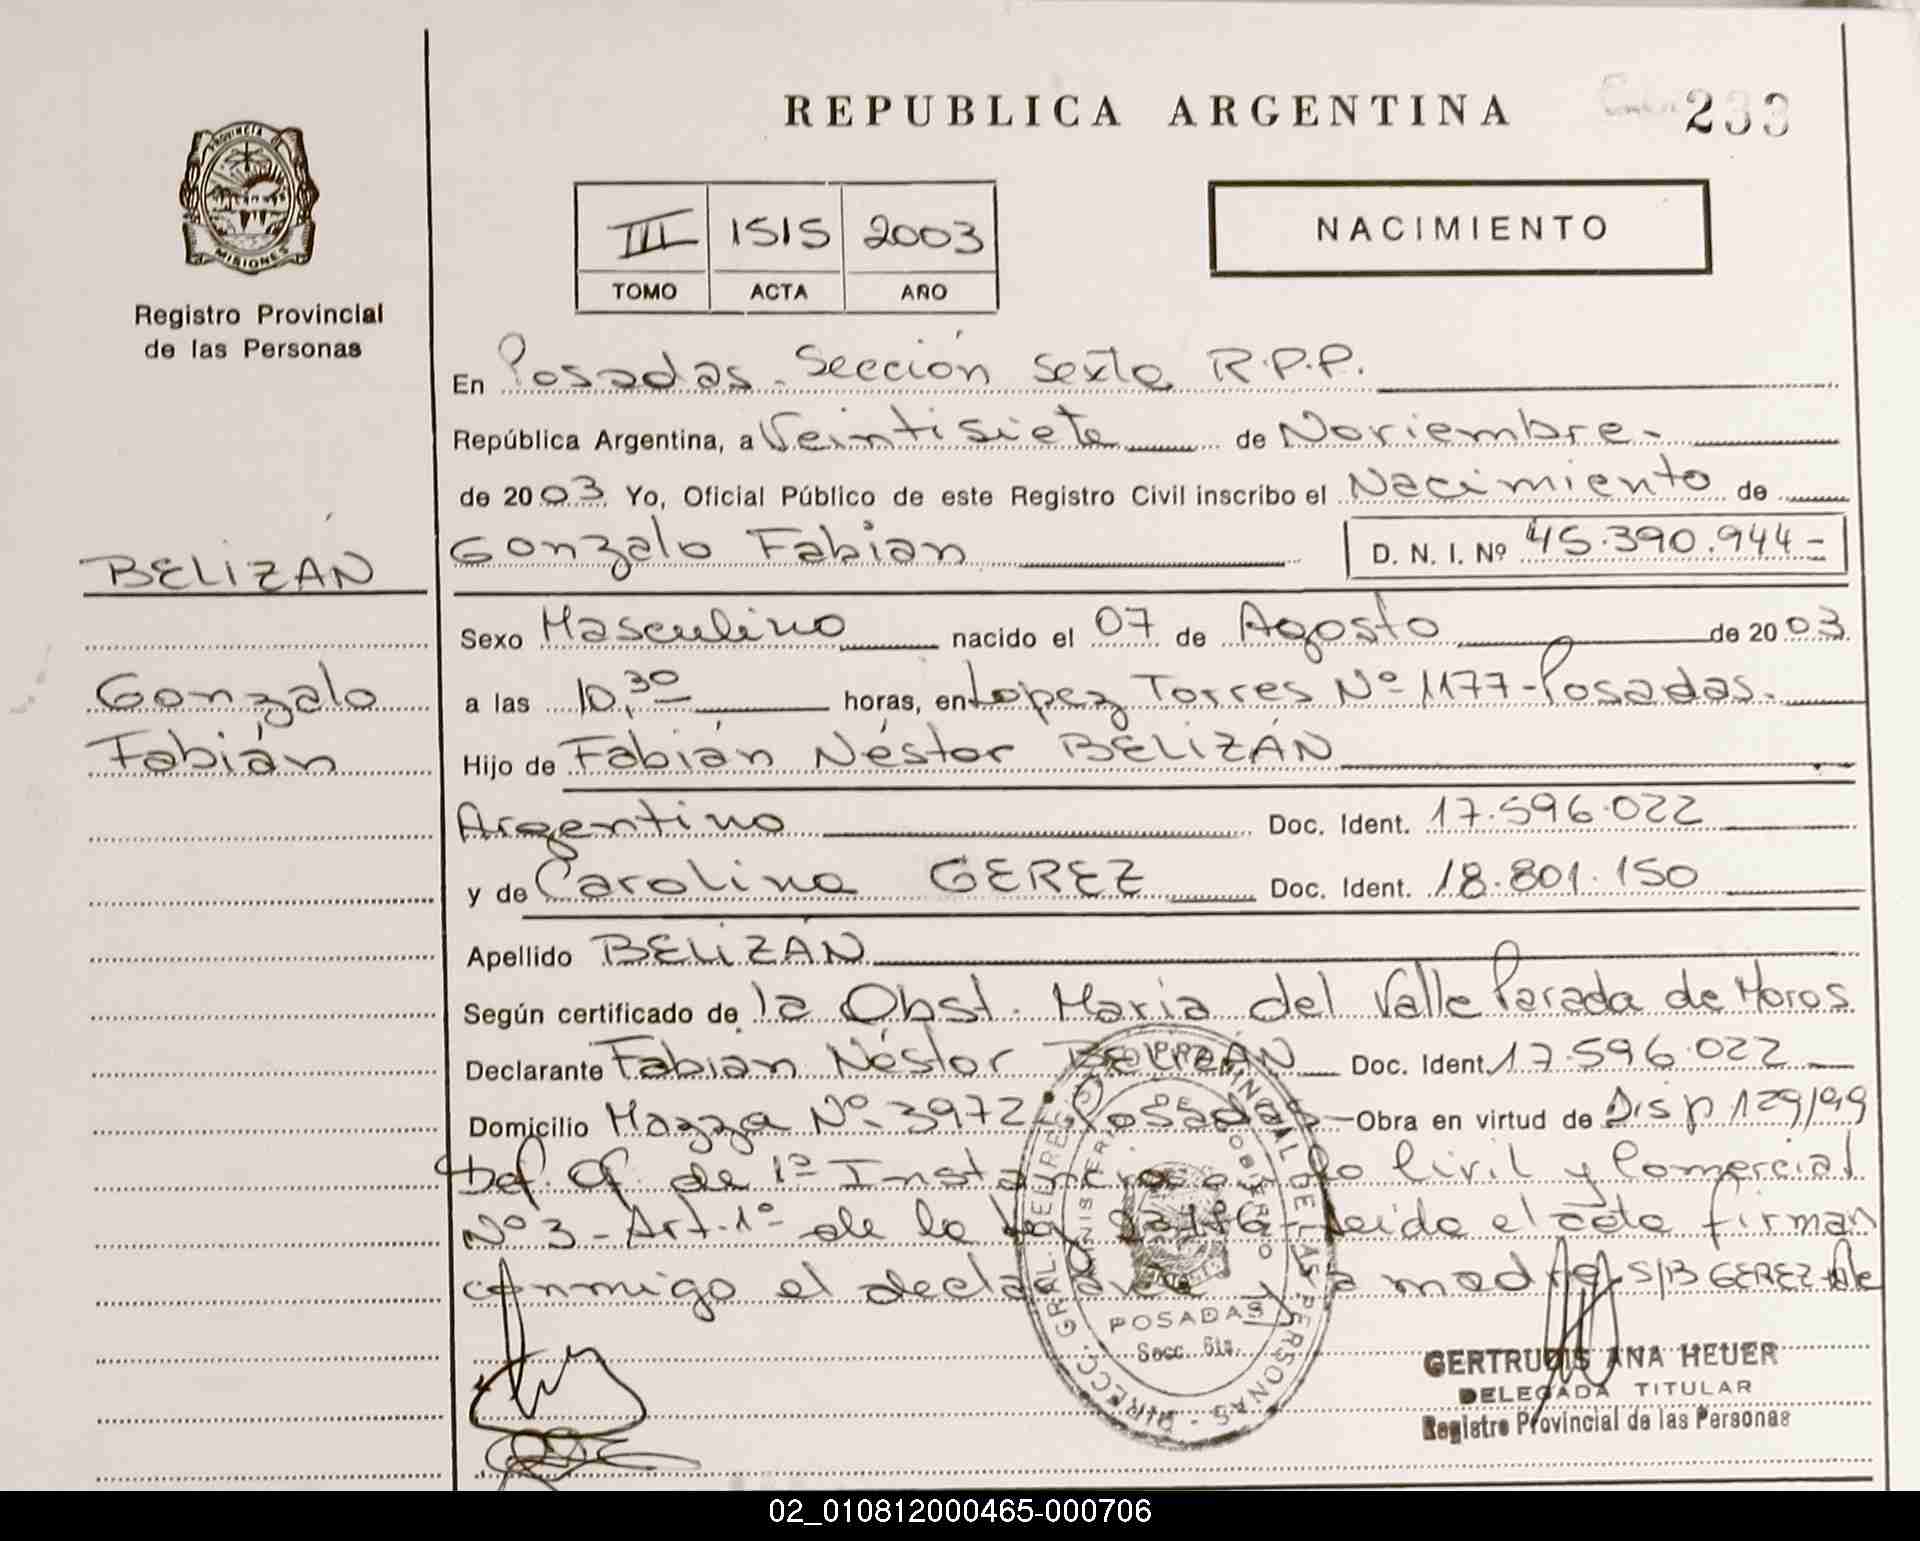 REPUBLICA ARGENTINA
233
PROVINCIA
MISIONES
Registro Provincial
de las Personas
III 1515 2003
TOMO ACTA AÑO
NACIMIENTO
En Posadas - Sección Sexta R.P.P.
República Argentina, a Veintisiete de Noviembre -
de 2003 Yo, Oficial Público de este Registro Civil inscribo el Nacimiento de
Gonzalo Fabián D. N. I. Nº 45.390.944 -
BELIZÁN
Gonzalo
Fabián
Sexo Masculino nacido el 07 de Agosto de 2003.
a las 10,30 horas, en Lopez Torres Nº 1177 - Posadas.
Hijo de Fabián Néstor BELIZÁN
Argentino Doc. Ident. 17.596.022
y de Carolina GEREZ Doc. Ident. 18.801.150
Apellido BELIZÁN
Según certificado de la Obst. Maria del Valle Parada de Moros
Declarante Fabián Néstor BELIZÁN Doc. Ident. 17.596.022
Domicilio Mazza Nº 3972 - Posadas - Obra en virtud de Disp 129/99
Def. Of. de 1ª Instancia en lo Civil y Comercial
Nº 3 - Art. 1º de la Ley - Leida el acta firman
conmigo el declarante y la madre S/B GEREZ Vale
DIRECC. GRAL. DEL REG. PROVINCIAL DE LAS PERSONAS
MINISTERIO DE GOBIERNO
POSADAS
Secc. 6ta.
GERTRUDIS ANA HEUER
DELEGADA TITULAR
Registro Provincial de las Personas
02_010812000465-000706